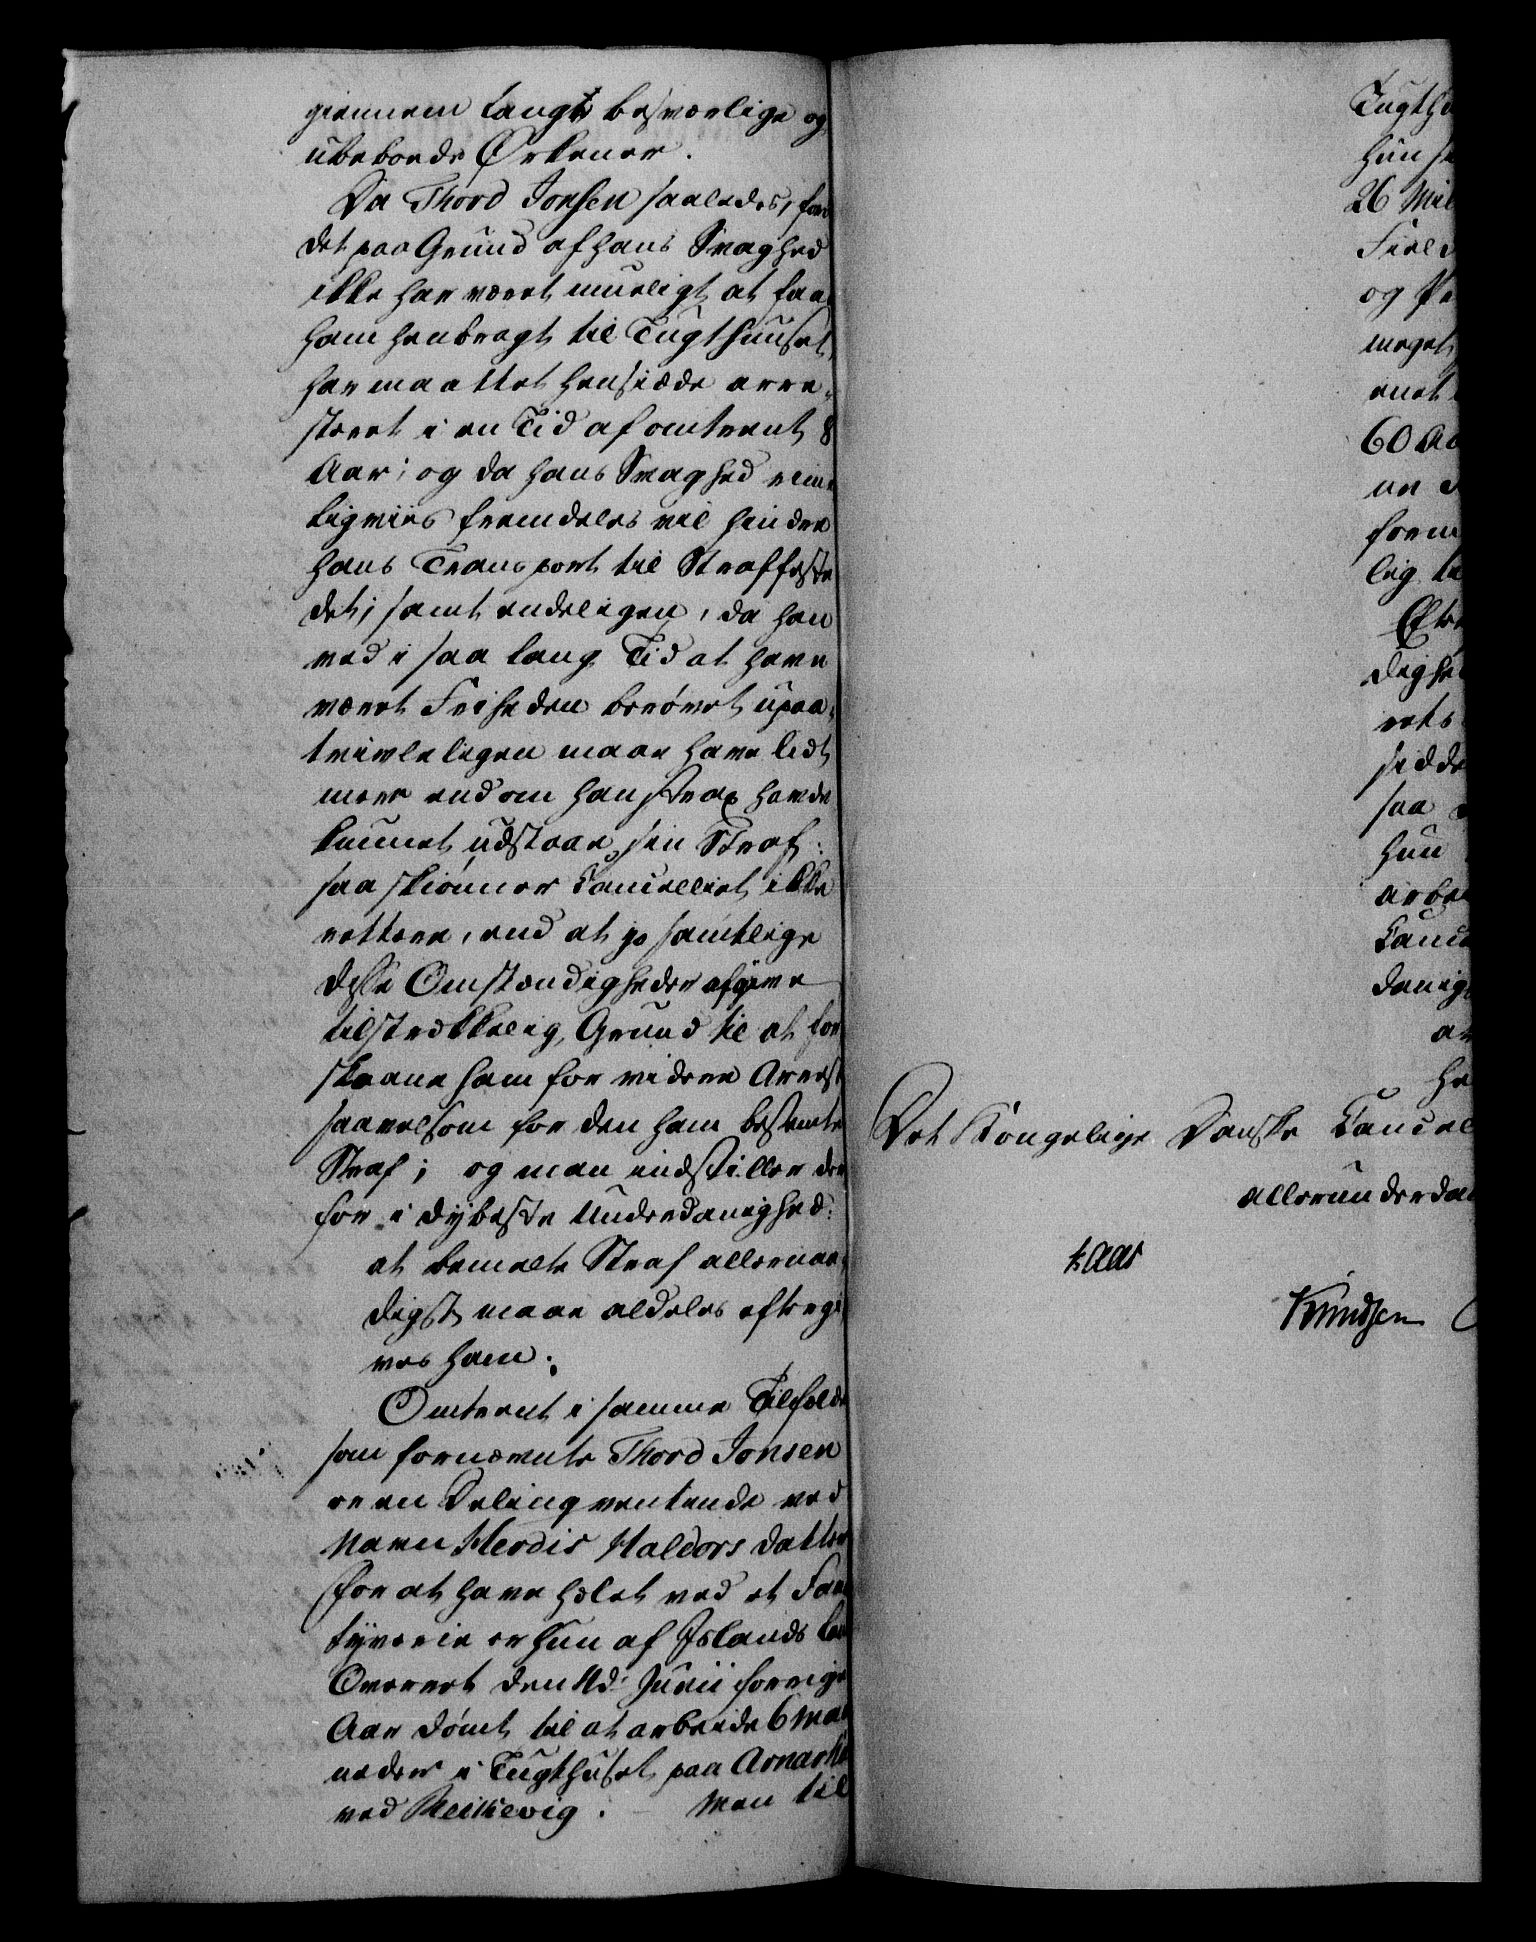 giennem lange besværlige og
ubeboede Ørkener.
Da Thord Jonsen saaledes, for
det paa Grund af hans Svaghed
ikke har været mueligt at faae
ham henbragt til Tugthuuset,
har maattet hensidde arre-
steret i en Tid af omtrent 8
Aar; og da hans Svaghed rime
ligviis fremdeles vil hindre
hans Transport til Straffeste
det; samt endeligen, da han
ved i saa lang Tid at have
været Friheden berøvet upaa-
tvivleligen maae have lidt
meer end om han strax havde
kunnet udstaae sin Straf:
saa skiønner Cancelliet ikke
rettere, end at jo samtlige
disse Omstændigheder afgive
tilstrækkelig Grund til at for
skaane ham for videre Arrest
saavelsom for den ham bestemte
Straf; og man indstiller der
for i dybeste Underdanighed:
at bemelte Straf allernaa-
digst maae aldeles eftergi
ves ham.
Omtrent i samme Tilfælde
som fornævnte Thord Jonsen
er en Delinqventinde ved
Navn Herdis Haldors datter
for at have hælet ved et Faare
tyverie er hun af Islands Lan
Overret den 11d Junii forrige
Aar dømt til at arbeide 6 Maa
neder i Tugthuset paa Arnarhol
ved Reikevig. Men til
Tugthu
hun
26 Mil
Field
og
meget
enet
60 Aa
en
form
lig
dighe
rets
sidde
saa
hun
arbei
Cance
danig
at
he
Det Kongelige Danske Cancel
allerunderdan
Kaas
Knudsen